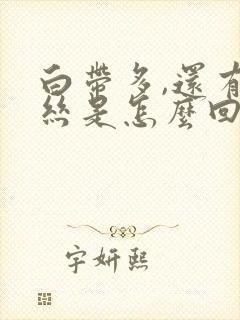 白帶多,還有
絲是怎麼回
字妍熙